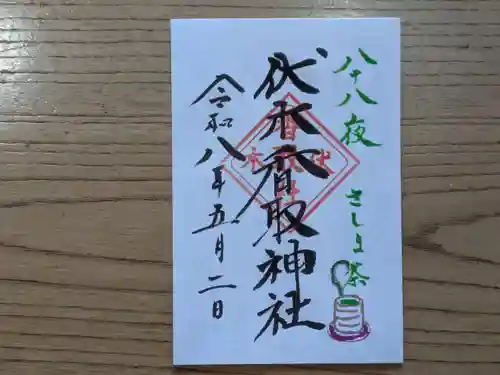 八十八夜 さしま茶
伏木香取神社
令和八年五月二日